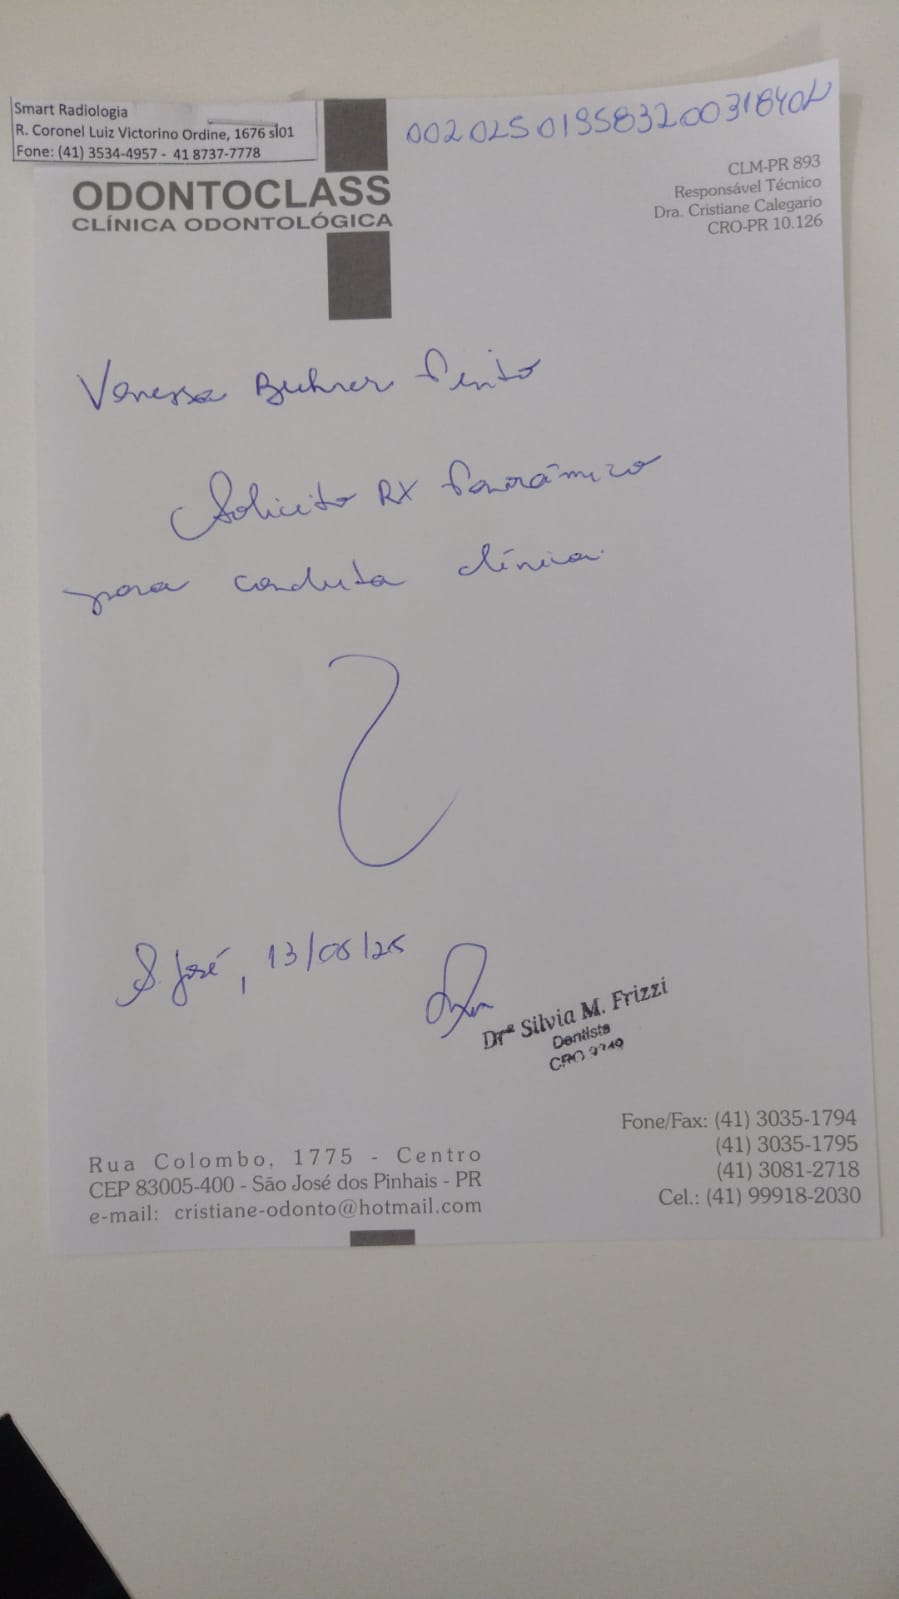 Smart Radiologia
R. Coronel Luiz Victorino Ordine, 1676 sl01
Fone: (41) 3534-4957 - 41 8737-7778
ODONTOCLASS
CLÍNICA ODONTOLÓGICA
CLM-PR 893
Responsável Técnico
Dra. Cristiane Calegario
CRO-PR 10.126
Vanessa Buhrer Pinto
Solicito RX Panorâmico
para conduta clínica.
S. José, 13/05/25
Drª Silvia M. Frizzi
Dentista
CRO
Rua Colombo, 1775 - Centro
CEP 83005-400 - São José dos Pinhais - PR
e-mail: cristiane-odonto@hotmail.com
Fone/Fax: (41) 3035-1794
(41) 3035-1795
(41) 3081-2718
Cel.: (41) 99918-2030